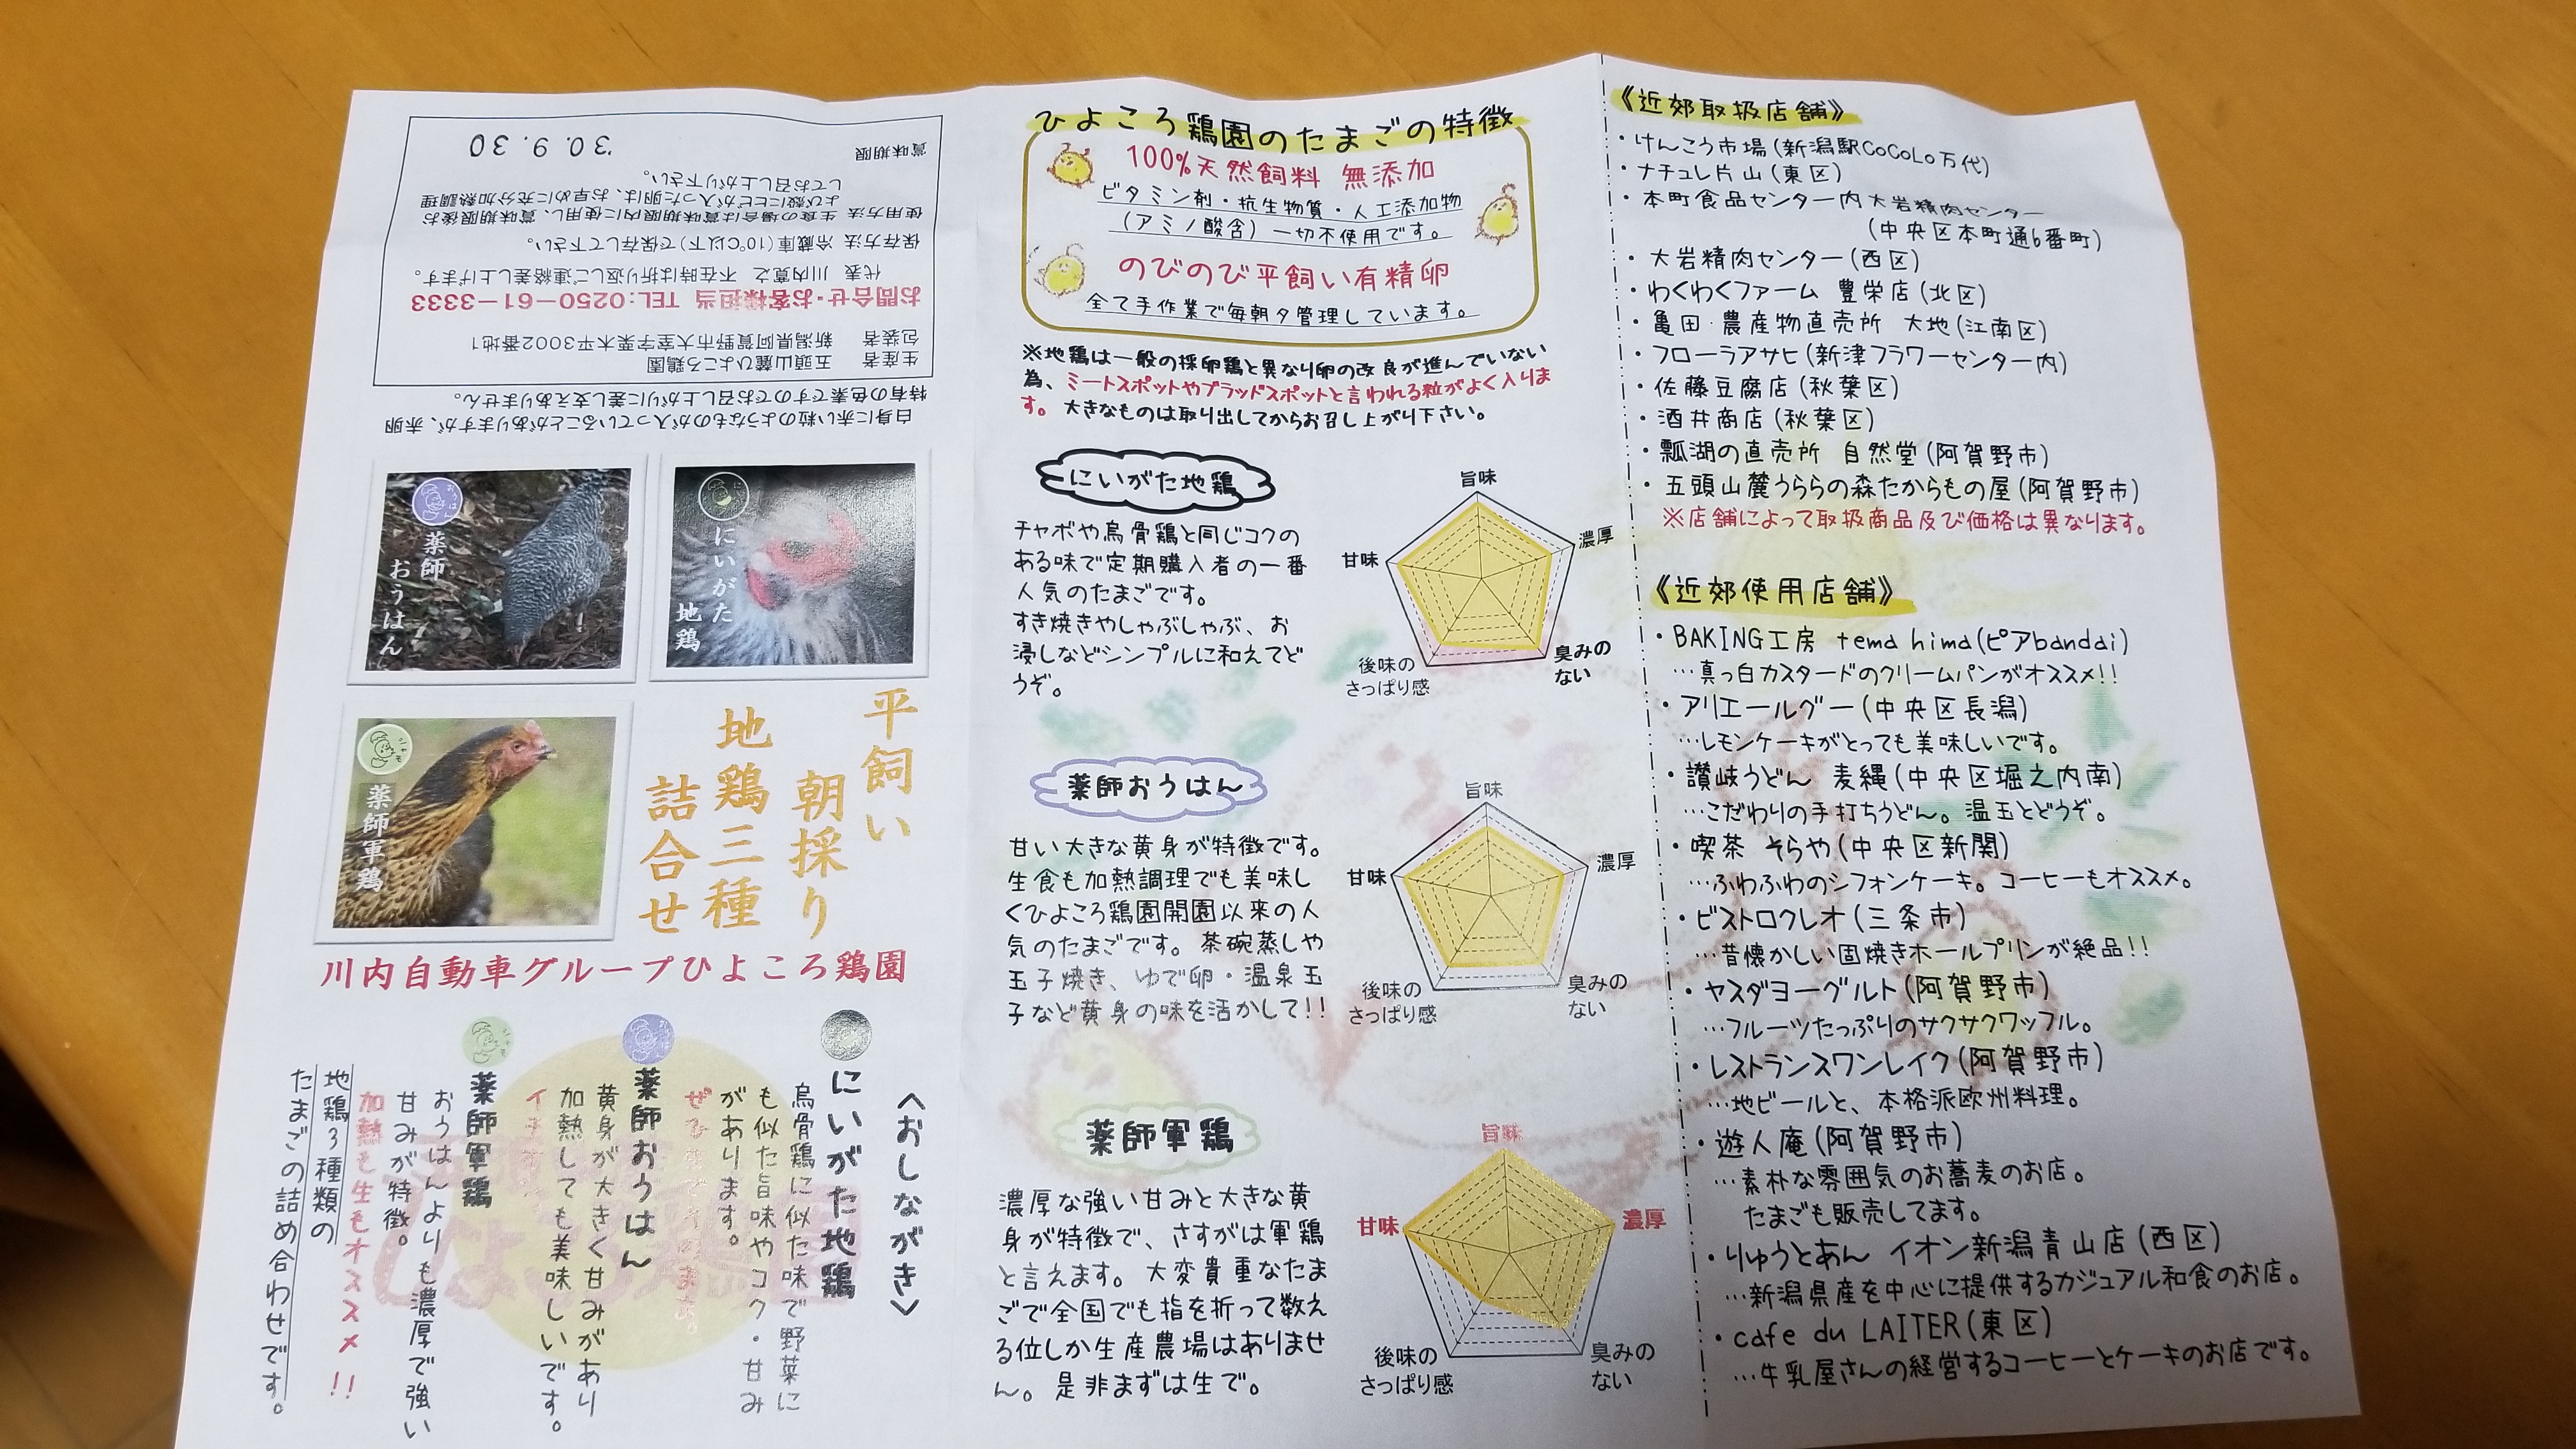 賞味期限 '30. 9. 30
使用方法 生食の場合は賞味期限内に使用し、賞味期限後お
よび殻にヒビが入った卵は、お早めに充分加熱調理
してお召し上がり下さい。
保存方法 冷蔵庫(10℃以下)で保存して下さい。
代表 川内寛之 不在時は折り返しご連絡差し上げます。
お問合せ・お客様担当 TEL:0250-61-3333
包装者 新潟県阿賀野市大室字栗木平3002番地1
生産者 五頭山麓ひよころ鶏園
白身に赤い粒のようなものが入っていることがありますが、赤卵
特有の色素ですのでお召し上がりに差し支えありません。
薬師
おうはん
にいがた
地鶏
薬師軍鶏
平飼い
朝採り
地鶏三種
詰合せ
川内自動車グループひよころ鶏園
〈おしながき〉
にいがた地鶏
烏骨鶏に似た味で野菜に
も似た旨味やコク・甘み
があります。
薬師おうはん
黄身が大きく甘みがあり
加熱しても美味しいです。
薬師軍鶏
おうはんよりも濃厚で強い
甘みが特徴。
加熱も生もオススメ!!
地鶏3種類の
たまごの詰め合わせです。
ひよころ鶏園のたまごの特徴
100%天然飼料 無添加
ビタミン剤・抗生物質・人工添加物
(アミノ酸含)一切不使用です。
のびのび平飼い有精卵
全て手作業で毎朝夕管理しています。
※地鶏は一般の採卵鶏と異なり卵の改良が進んでいない
為、ミートスポットやブラッドスポットと言われる粒がよく入りま
す。大きなものは取り出してからお召し上がり下さい。
にいがた地鶏
チャボや烏骨鶏と同じコクの
ある味で定期購入者の一番
人気のたまごです。
すき焼きやしゃぶしゃぶ、お
浸しなどシンプルに和えてど
うぞ。
旨味
濃厚
臭みの
ない
後味の
さっぱり感
甘味
薬師おうはん
甘い大きな黄身が特徴です。
生食も加熱調理でも美味し
くひよころ鶏園開園以来の人
気のたまごです。茶碗蒸しや
玉子焼き、ゆで卵・温泉玉
子など黄身の味を活かして!!
旨味
濃厚
臭みの
ない
後味の
さっぱり感
甘味
薬師軍鶏
濃厚な強い甘みと大きな黄
身が特徴で、さすがは軍鶏
と言えます。大変貴重なたま
ごで全国でも指を折って数え
る位しか生産農場はありませ
ん。是非まずは生で。
旨味
濃厚
臭みの
ない
後味の
さっぱり感
甘味
《近郊取扱店舗》
・けんこう市場(新潟駅CoCoLo万代)
・ナチュレ片山(東区)
・本町食品センター内 大岩精肉センター
(中央区本町通6番町)
・大岩精肉センター(西区)
・わくわくファーム 豊栄店(北区)
・亀田・農産物直売所 大地(江南区)
・フローラアサヒ(新津フラワーセンター内)
・佐藤豆腐店(秋葉区)
・酒井商店(秋葉区)
・瓢湖の直売所 自然堂(阿賀野市)
・五頭山麓うららの森たからもの屋(阿賀野市)
※店舗によって取扱商品及び価格は異なります。
《近郊使用店舗》
・BAKING工房 tema hima(ピアbandai)
…真っ白カスタードのクリームパンがオススメ!!
・アリエールグー(中央区長潟)
…レモンケーキがとっても美味しいです。
・讃岐うどん 麦縄(中央区堀之内南)
…こだわりの手打ちうどん。温玉とどうぞ。
・喫茶 そらや(中央区新関)
…ふわふわのシフォンケーキ。コーヒーもオススメ。
・ビストロクレオ(三条市)
…昔懐かしい固焼きホールプリンが絶品!!
・ヤスダヨーグルト(阿賀野市)
…フルーツたっぷりのサクサクワッフル。
・レストランスワンレイク(阿賀野市)
…地ビールと、本格派欧州料理。
・遊人庵(阿賀野市)
…素朴な雰囲気のお蕎麦のお店。
たまごも販売してます。
・りゅうとあん イオン新潟青山店(西区)
…新潟県産を中心に提供するカジュアル和食のお店。
・cafe du LAITER(東区)
…牛乳屋さんの経営するコーヒーとケーキのお店です。